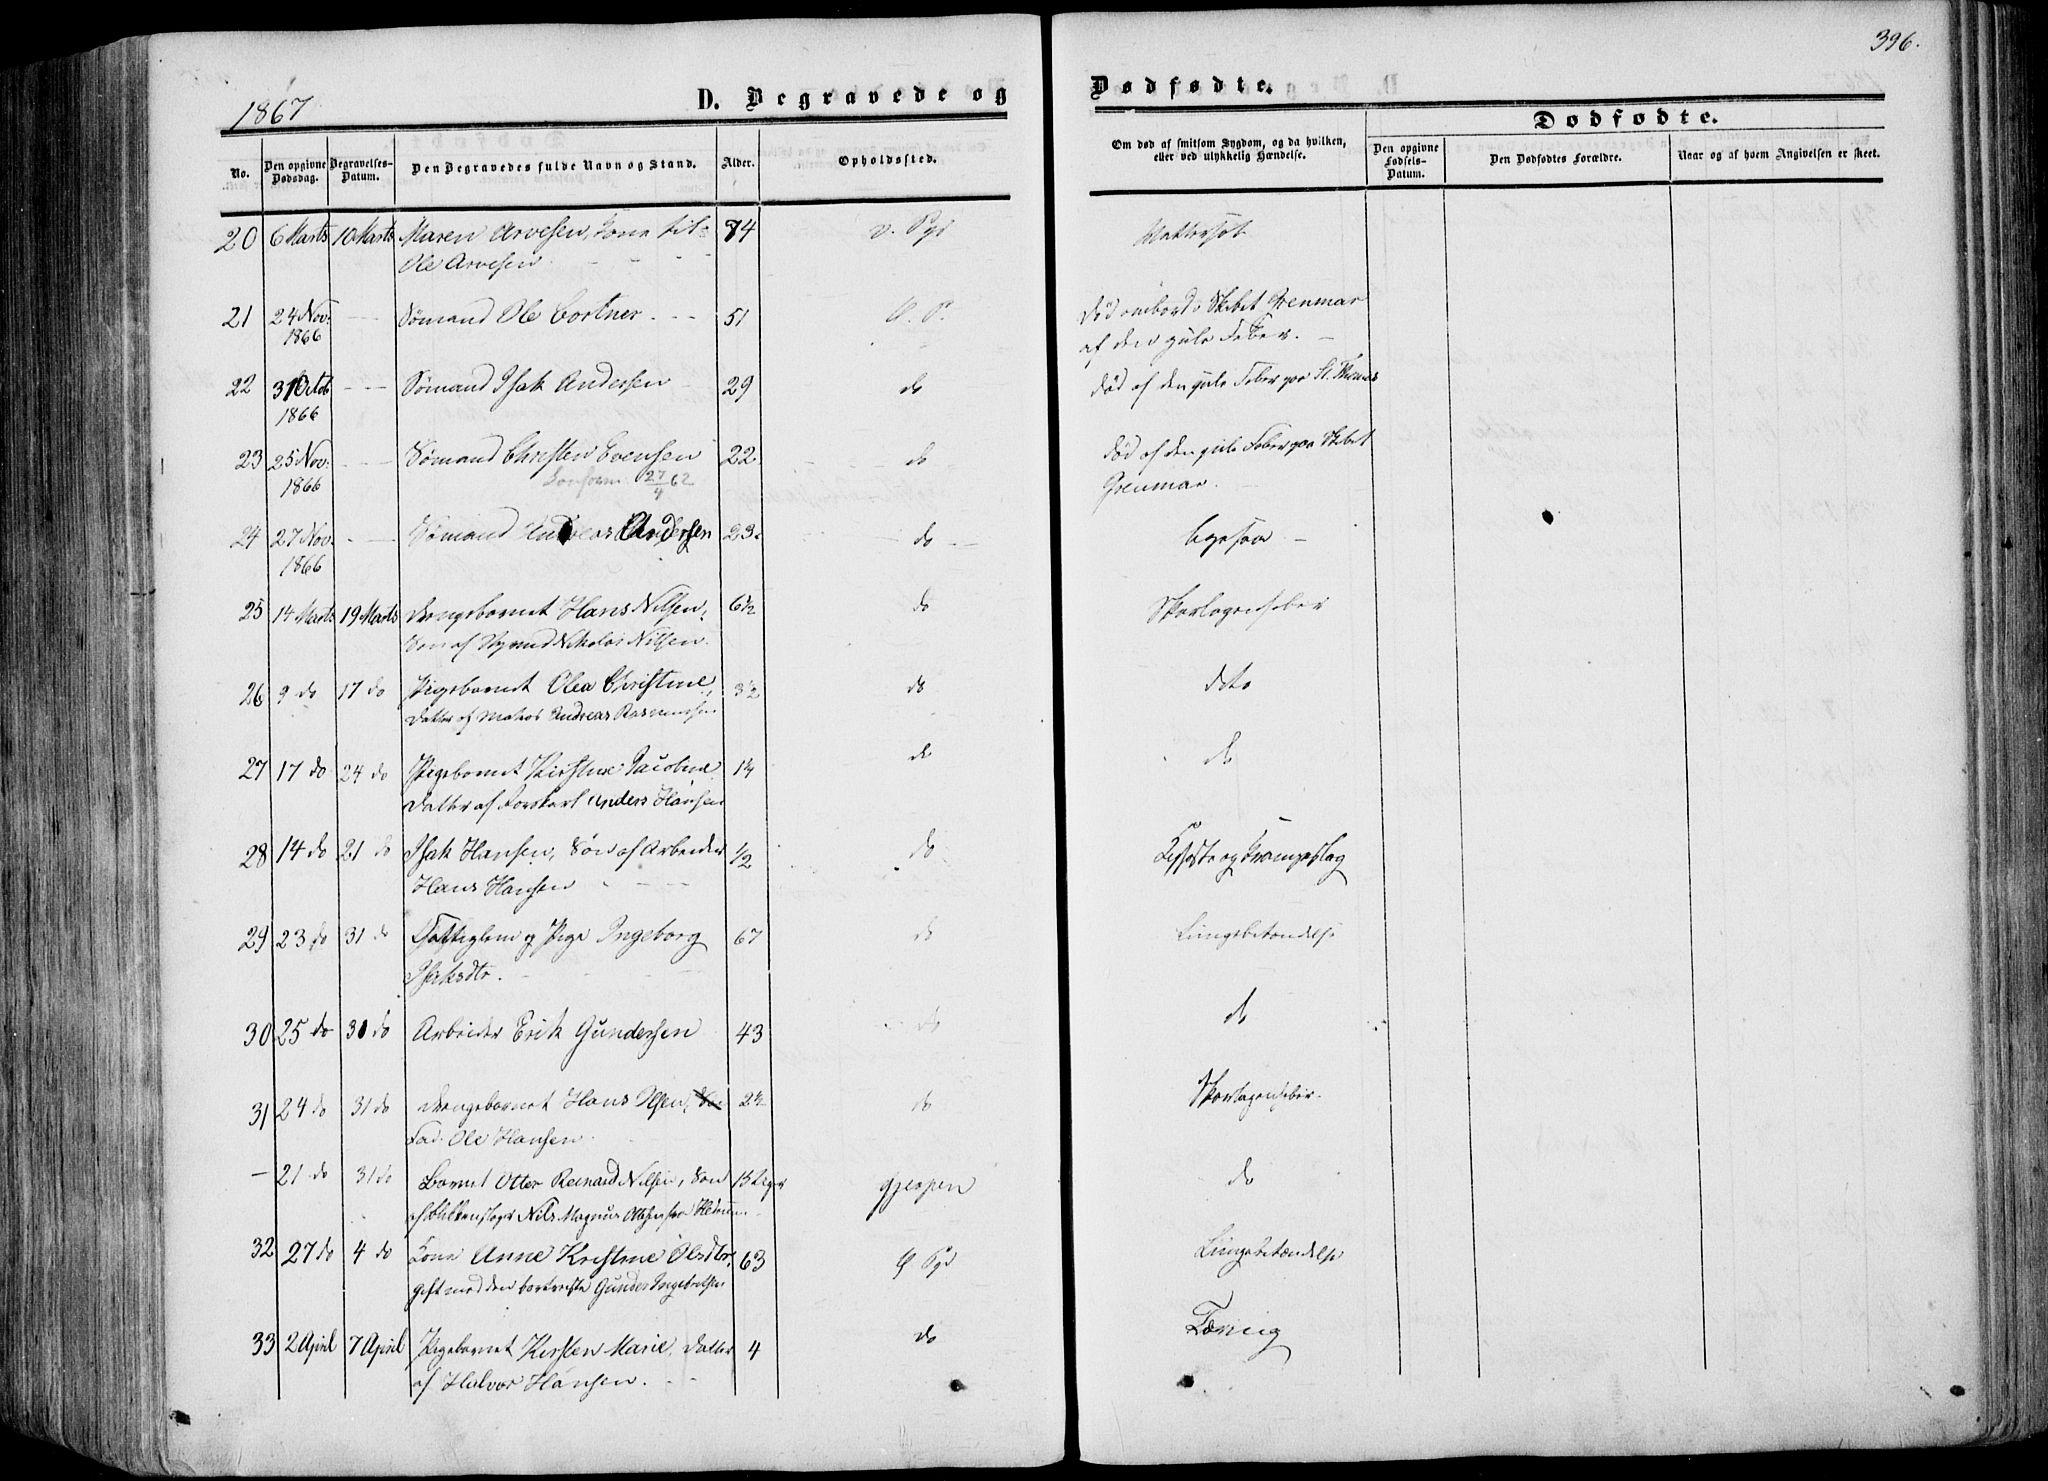 396.
1867
D. Begravede og
Dødfødte.
No.
Den opgivne Dødsdag.
Begravelses-Datum.
Den Begravedes fulde Navn og Stand.
Alder.
Opholdssted.
Om død af smitsom Sygdom, og da hvilken, eller ved ulykkelig Hændelse.
Dødfødte.
Den opgivne Fødsels-Datum.
Den Dødfødtes Forældre.
Naar og af hvem Angivelsen er skeet.
20 6 Marts 10 Marts Maren Arvesen, Kone til 74
Ole Arvesen
21 24 Nov: — Sømand Ole Cortner 51 død ombord i Skibet Grenmar
1866 af den gule Feber.
22 31 Octob — Sømand Isak Andersen 29 do død af den gule Feber paa St. Thomas
1866
23 25 Nov: — Sømand Christen Evensen 22 do død af den gule Feber paa Skibet
1866 27/4 62 Grenmar.
24 27 Nov. — Sømand Andreas Andersen 23 do
1866
25 14 Marts 19 Marts Drengebarnet Hans Nilsen, 6½ do Skarlagensfeber
Søn af Nikolai Nilsen.
26 9 do 17 do Pigebarnet Olea Christine, 3½ do dito
Datter af Matros Andreas Rasmussen
27 17 do 24 do Pigebarnet Kirstine Jacobine 1¼ do do
Datter af Anders Hansen
28 14 do 21 do Isak Hansen, Søn af Arbeider ½ do og Krampeslag
Hans Hansen
29 23 do 31 do Fattiglem og Pige Ingeborg 67 do Lungebetændelse
Isaksdtr.
30 25 do 31 do Arbeider Erik Gundersen 43 do do
31 24 do 31 do Drengebarnet Hans Olsen, 2½ do Skarlagensfeber.
Fad. Ole Hansen
— 21 do 31 do Barnet Otter Reinard Nilsen, Søn 15 Uger Gjerpen do
af Nils Magnus Ottersen
32 27 do 4 do Kone Anne Kristine Olsdtr, 63 Lungebetændelse
gift med den bortreiste Gunder Ingebretsen
33 2 April 7 April Pigebarnet Kirsten Marie, Datter 4 do Tæring
af Halvor Hansen.